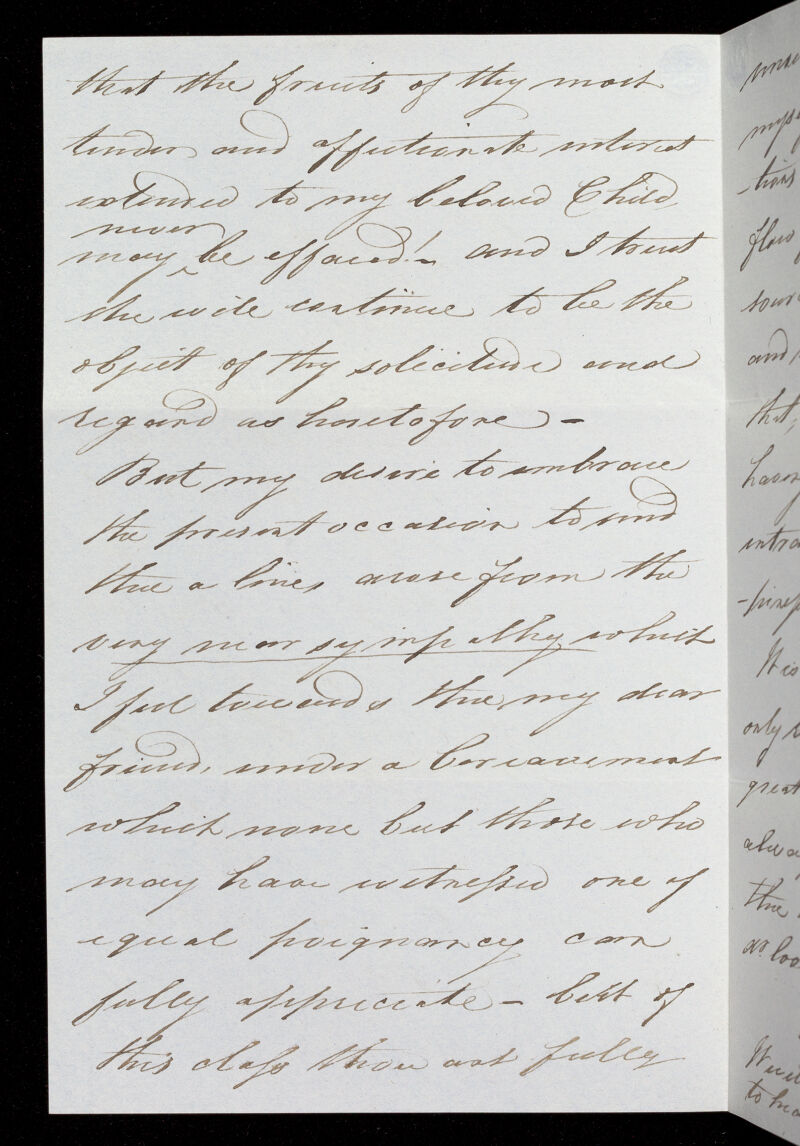 that the fruits of thy most
tender and affectionate interest
extended to my beloved Child,
never
may ^ be effaced! - and I trust
she will continue to be the
object of thy solicitude and
regard as heretofore -
But my desire to embrace
the present occasion to send
thee a lines arose from the
very near sympathy which
I feel towards thee my dear
friend, under a bereavement
which none but those who
may have witnessed one of
equal poignancy can
fully appreciate - but of
this class thou art fully
myse
-tions
flow
sour
and
that,
having
intro
It is
only
great
alwa
thee
as loo
to hea